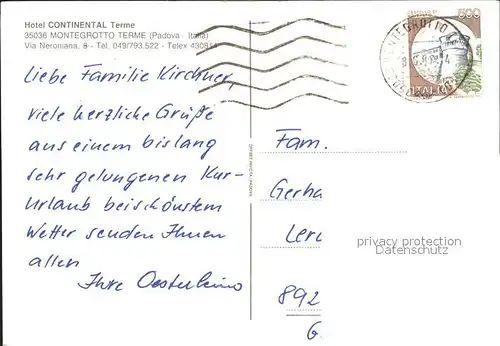 Hotel CONTINENTAL Terme
35036 MONTEGROTTO TERME (Padova - Italia)
Via Neroniana, 8 - Tel. 049/793.522 - Telex 430814
500
MONTEGROTTO
ITALIA
Liebe Familie Kirchner,
viele herzliche Grüße
aus einem bislang
sehr gelungenen Kur-
Urlaub bei schönstem
Wetter senden Ihnen
allen
Ihre
Fam.
Gerha
Ler
892
G
privacy protection
Datenschutz